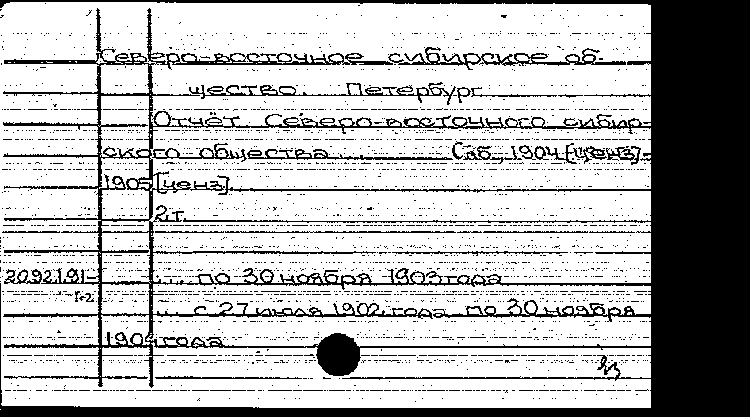 Северо-восточное сибирское об-
щество. Петербург
Отчёт Северо-восточного сибир-
ского общества ... Спб., 1904 [ценз]-
1905 [ценз].
2 т.
209219I- ... по 30 ноября 1903 года
1-2
... с 27 июля 1902 года по 30 ноября
1904 года